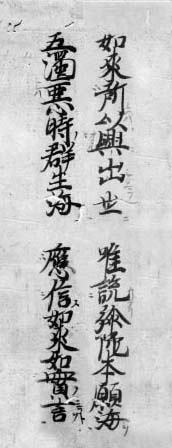 如來所以興出世 唯說弥陁本願海
五濁惡時群生海 應信如來如實言